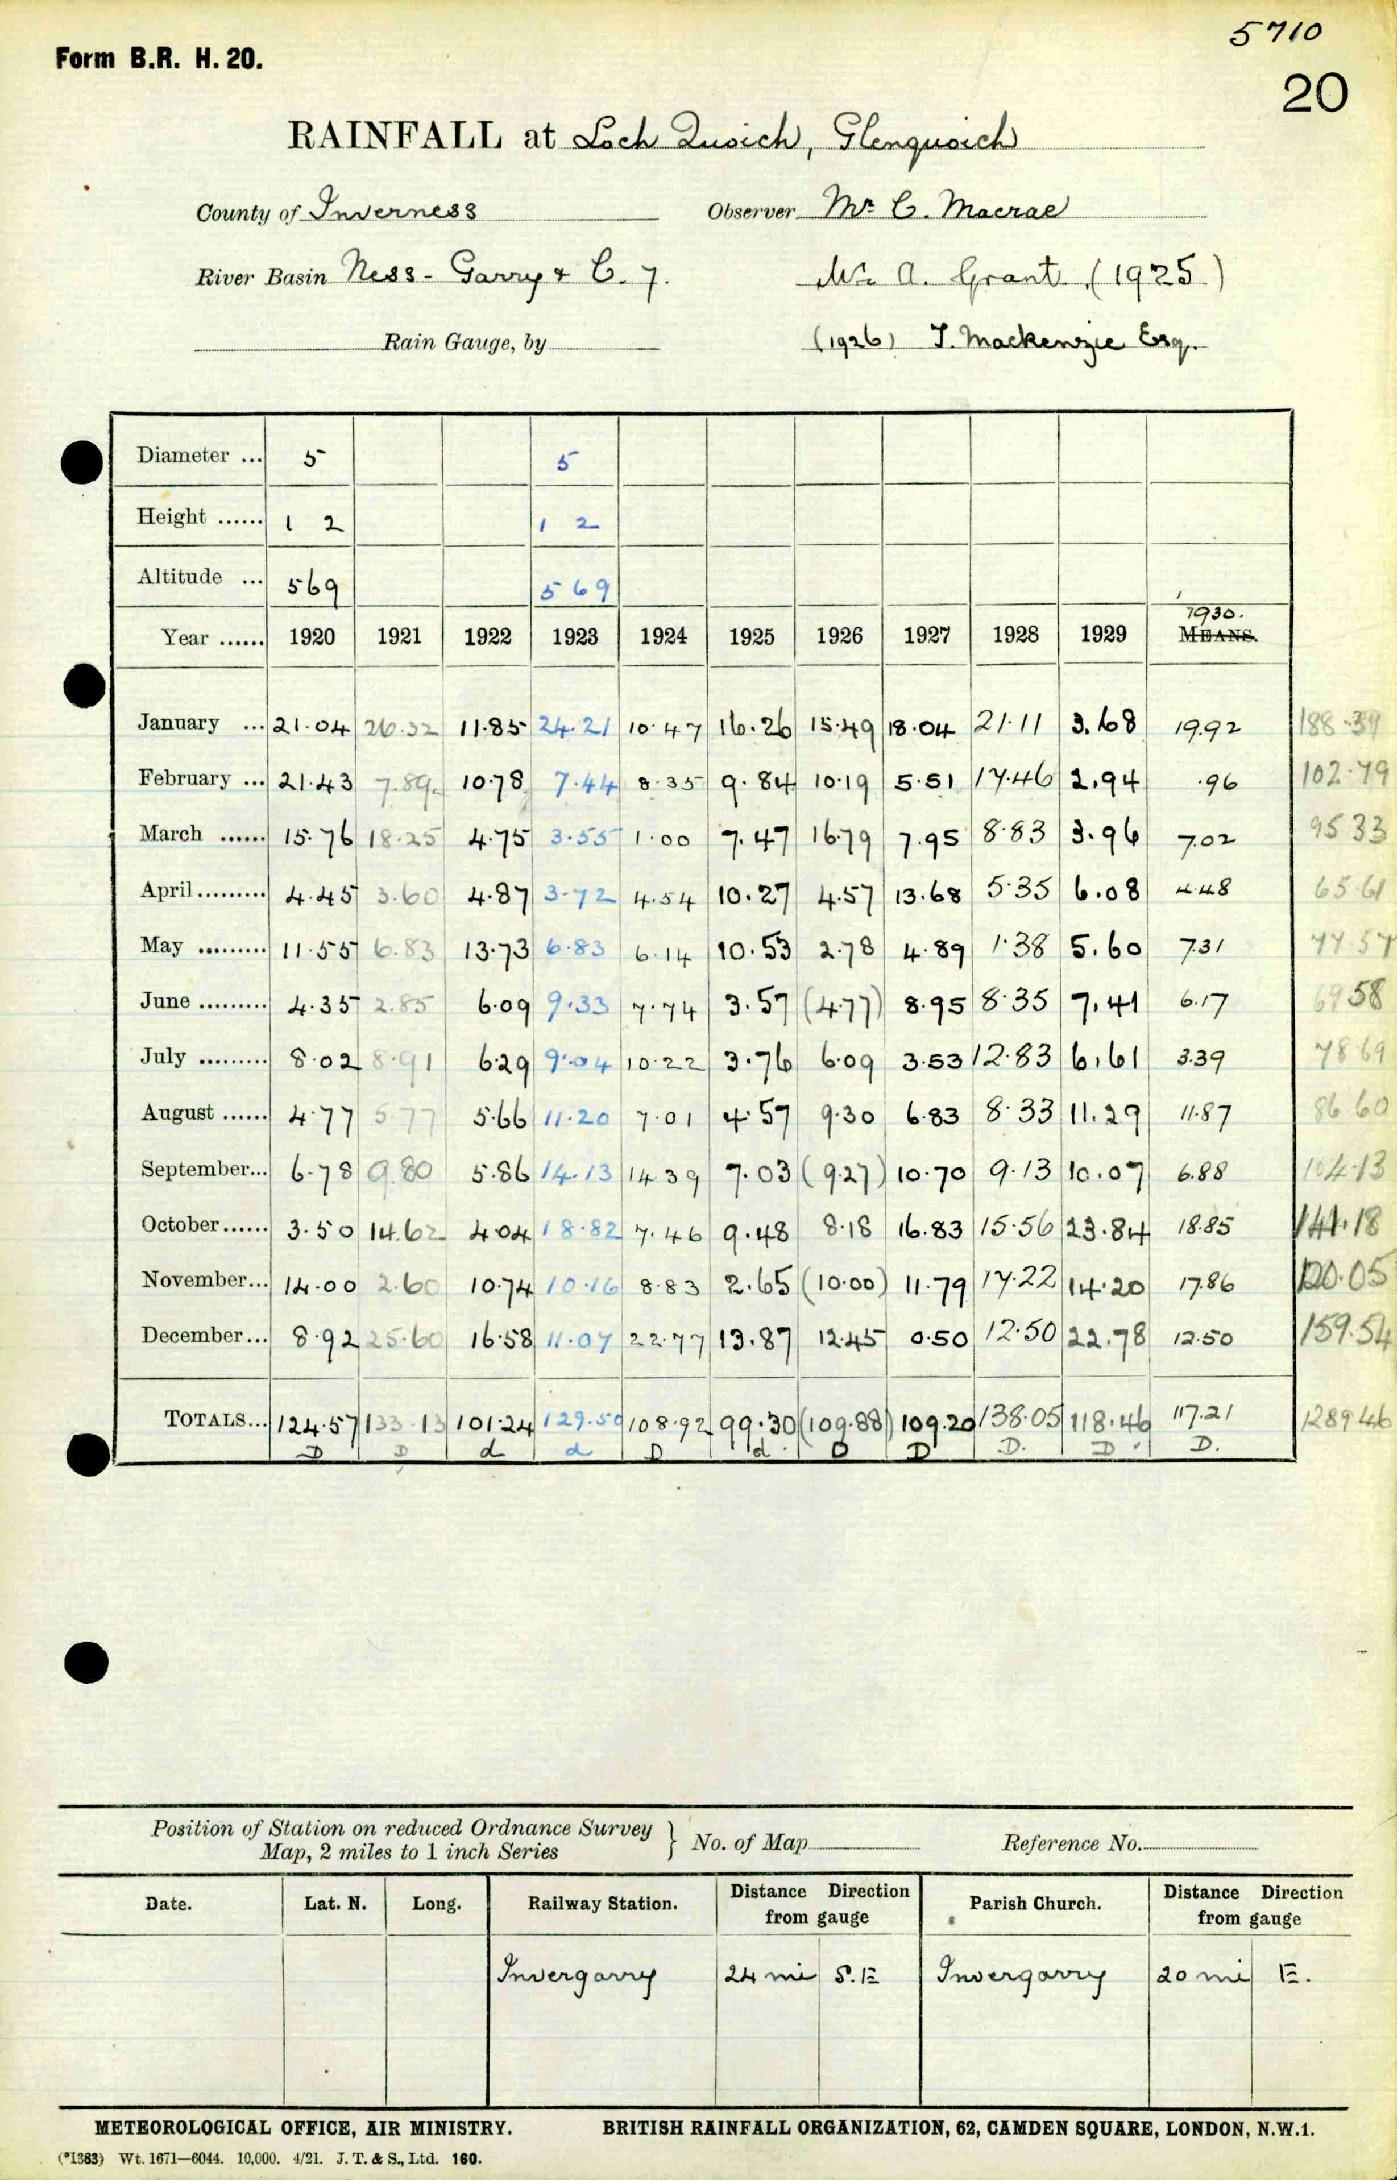 5710
Form B.R. H. 20.
20
RAINFALL at Loch Quoich, Glenquoich
County of Inverness Observer Mr C. Macrae
River Basin Ness - Garry & C. 7. Mr. A. Grant (1925)
Rain Gauge, by (1926) T. Mackenzie Esq.
Diameter ... 5 5
Height ...... 1 2 1 2
Altitude ... 569 569
1930.
Year ...... 1920 1921 1922 1923 1924 1925 1926 1927 1928 1929 MEANS.
January ... 21.04 26.32 11.85 24.21 10.47 16.26 15.49 18.04 21.11 3.68 19.92 188.39
February ... 21.43 7.89 10.78 7.44 8.35 9.84 10.19 5.51 17.46 2.94 .96 102.79
March ...... 15.76 18.25 4.75 3.55 1.00 7.47 16.79 7.95 8.83 3.96 7.02 95.33
April ......... 4.45 3.60 4.87 3.72 4.54 10.27 4.57 13.68 5.35 6.08 4.48 65.61
May ......... 11.55 6.83 13.73 6.83 6.14 10.53 2.78 4.89 1.38 5.60 7.31 77.57
June ......... 4.35 2.85 6.09 9.33 7.74 3.57 (4.77) 8.95 8.35 7.41 6.17 69.58
July ......... 8.02 8.91 6.29 9.04 10.22 3.76 6.09 3.53 12.83 6.61 3.39 78.69
August ...... 4.77 5.77 5.66 11.20 7.01 4.57 9.30 6.83 8.33 11.29 11.87 86.60
September... 6.78 9.80 5.86 14.13 14.39 7.03 (9.27) 10.70 9.13 10.07 6.88 104.13
October...... 3.50 14.62 4.04 18.82 7.46 9.48 8.18 16.83 15.56 23.84 18.85 141.18
November... 14.00 2.60 10.74 10.16 8.83 2.65 (10.00) 11.79 17.22 14.20 17.86 120.05
December... 8.92 25.60 16.58 11.07 22.77 13.87 12.45 0.50 12.50 22.78 12.50 159.54
TOTALS... 124.57 133.13 101.24 129.50 108.92 99.30 (109.88) 109.20 138.05 118.46 117.21 1289.46
D D d d D d D D D. D. D.
Position of Station on reduced Ordnance Survey
Map, 2 miles to 1 inch Series } No. of Map Reference No.
Date. Lat. N. Long. Railway Station. Distance Direction from gauge Parish Church. Distance Direction from gauge
Invergarry 24 mi S.E Invergarry 20 mi E.
METEOROLOGICAL OFFICE, AIR MINISTRY. BRITISH RAINFALL ORGANIZATION, 62, CAMDEN SQUARE, LONDON, N.W.1.
(*1383) Wt. 1671—6044. 10,000. 4/21. J. T. & S., Ltd. 160.